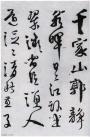 千家山郭靜
朝暉日日江樓坐
翠微信宿漁人
還泛泛清秋燕子